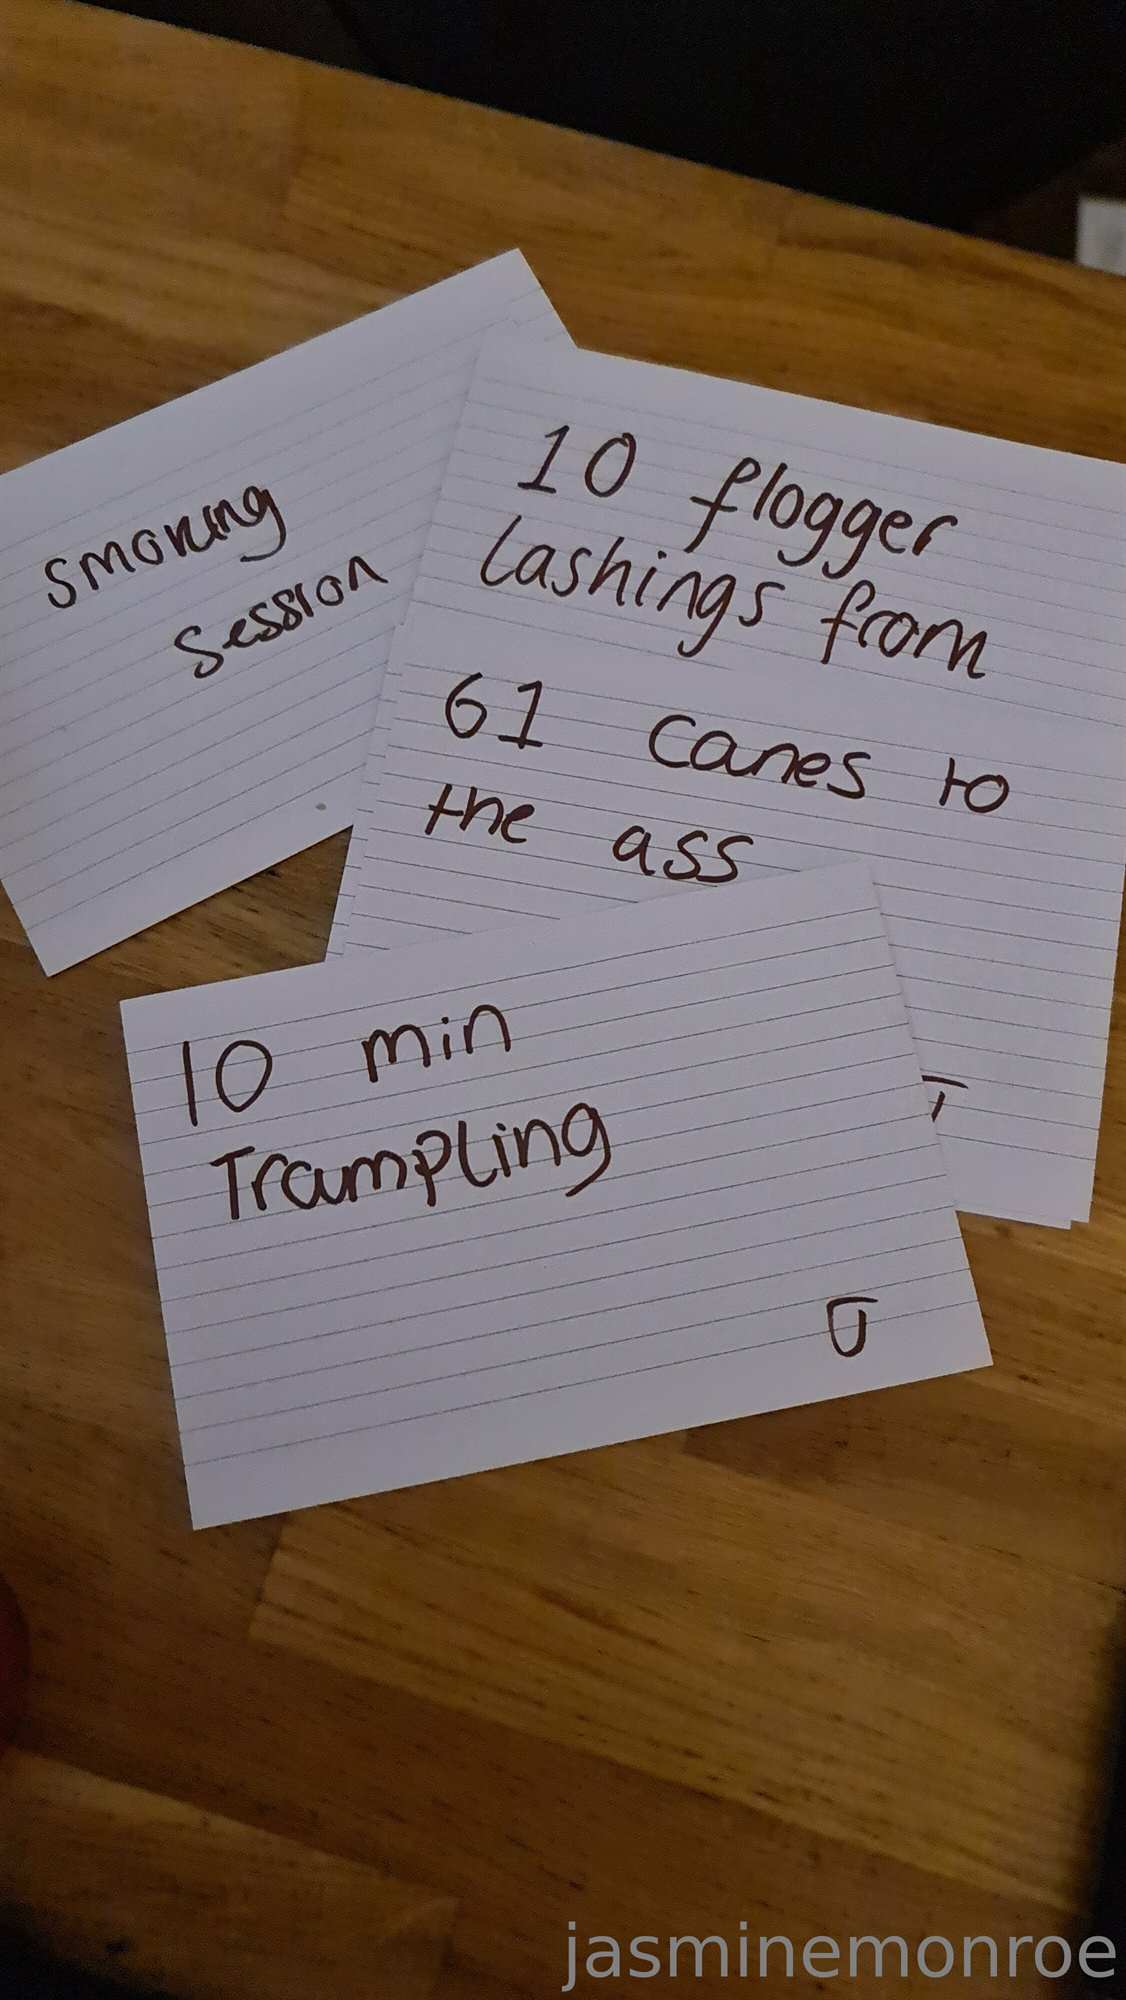 smoking
session
10 flogger
lashings from
61 canes to
the ass
10 min
Trampling
J
jasminemonroe